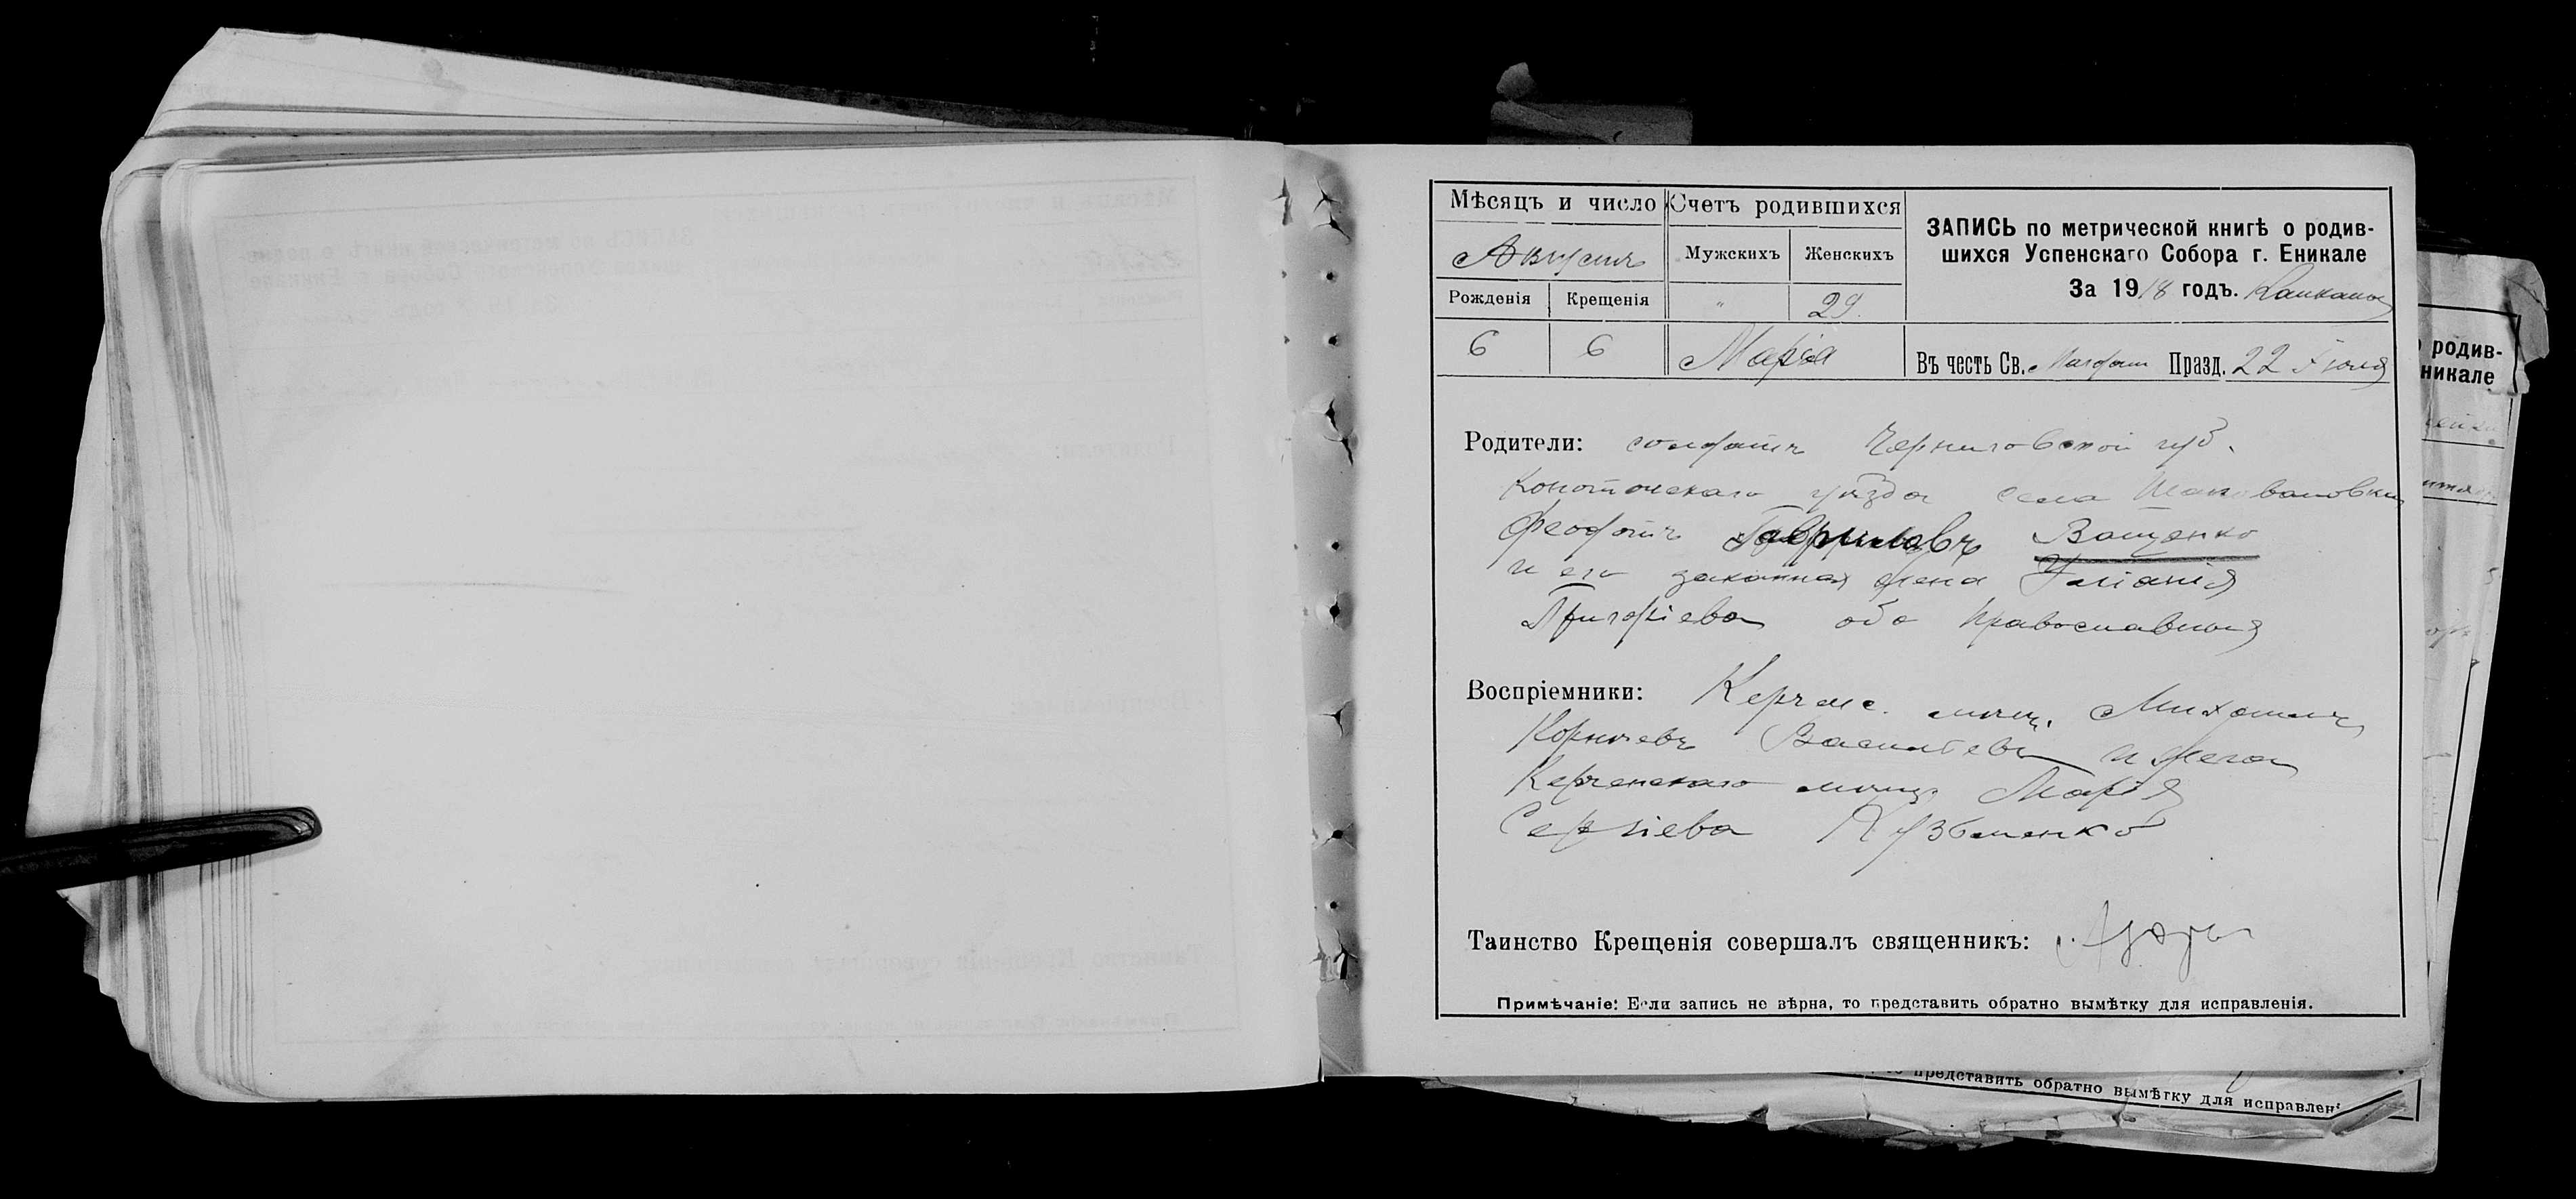 Мѣсяцъ и число
Счетъ родившихся
ЗАПИСЬ по метрической книгѣ о родив-
шихся Успенскаго Собора г. Еникале
За 1918 годъ.
Августъ
Мужскихъ
Женскихъ
Рожденія
Крещенія
"
29.
6
6
Марія
Въ честь Св. Магдал Празд. 22 Іюля
Родители: солдатъ Черниговской губ.
Конотопскаго уѣзда села
Феодотъ Гавриловъ Ващенко
и его законная жена Уліанія
Григоріева оба православныя
Воспріемники: Керченс. мѣщ. Михаилъ
Корнѣевъ Васильевъ и жена
Керченскаго мѣщ. Марія
Сергіева Кузьменко
Таинство Крещенія совершалъ священникъ:
Примѣчаніе: Если запись не вѣрна, то представить обратно вымѣтку для исправленія.
родив-
никале
представить обратно вымѣтку для исправлені